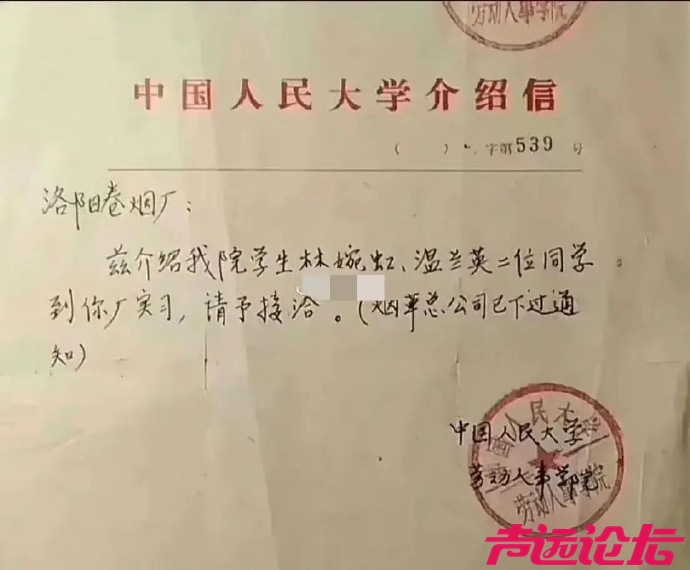 劳动人事学院
中国人民大学介绍信
( ) 字第539号
洛阳卷烟厂:
兹介绍我院学生林婉虹、温兰英二位同学
到你厂实习,请予接洽。(烟草总公司已下过通
知)
中国人民大学
劳动人事学院
劳动人事学院
声远论坛